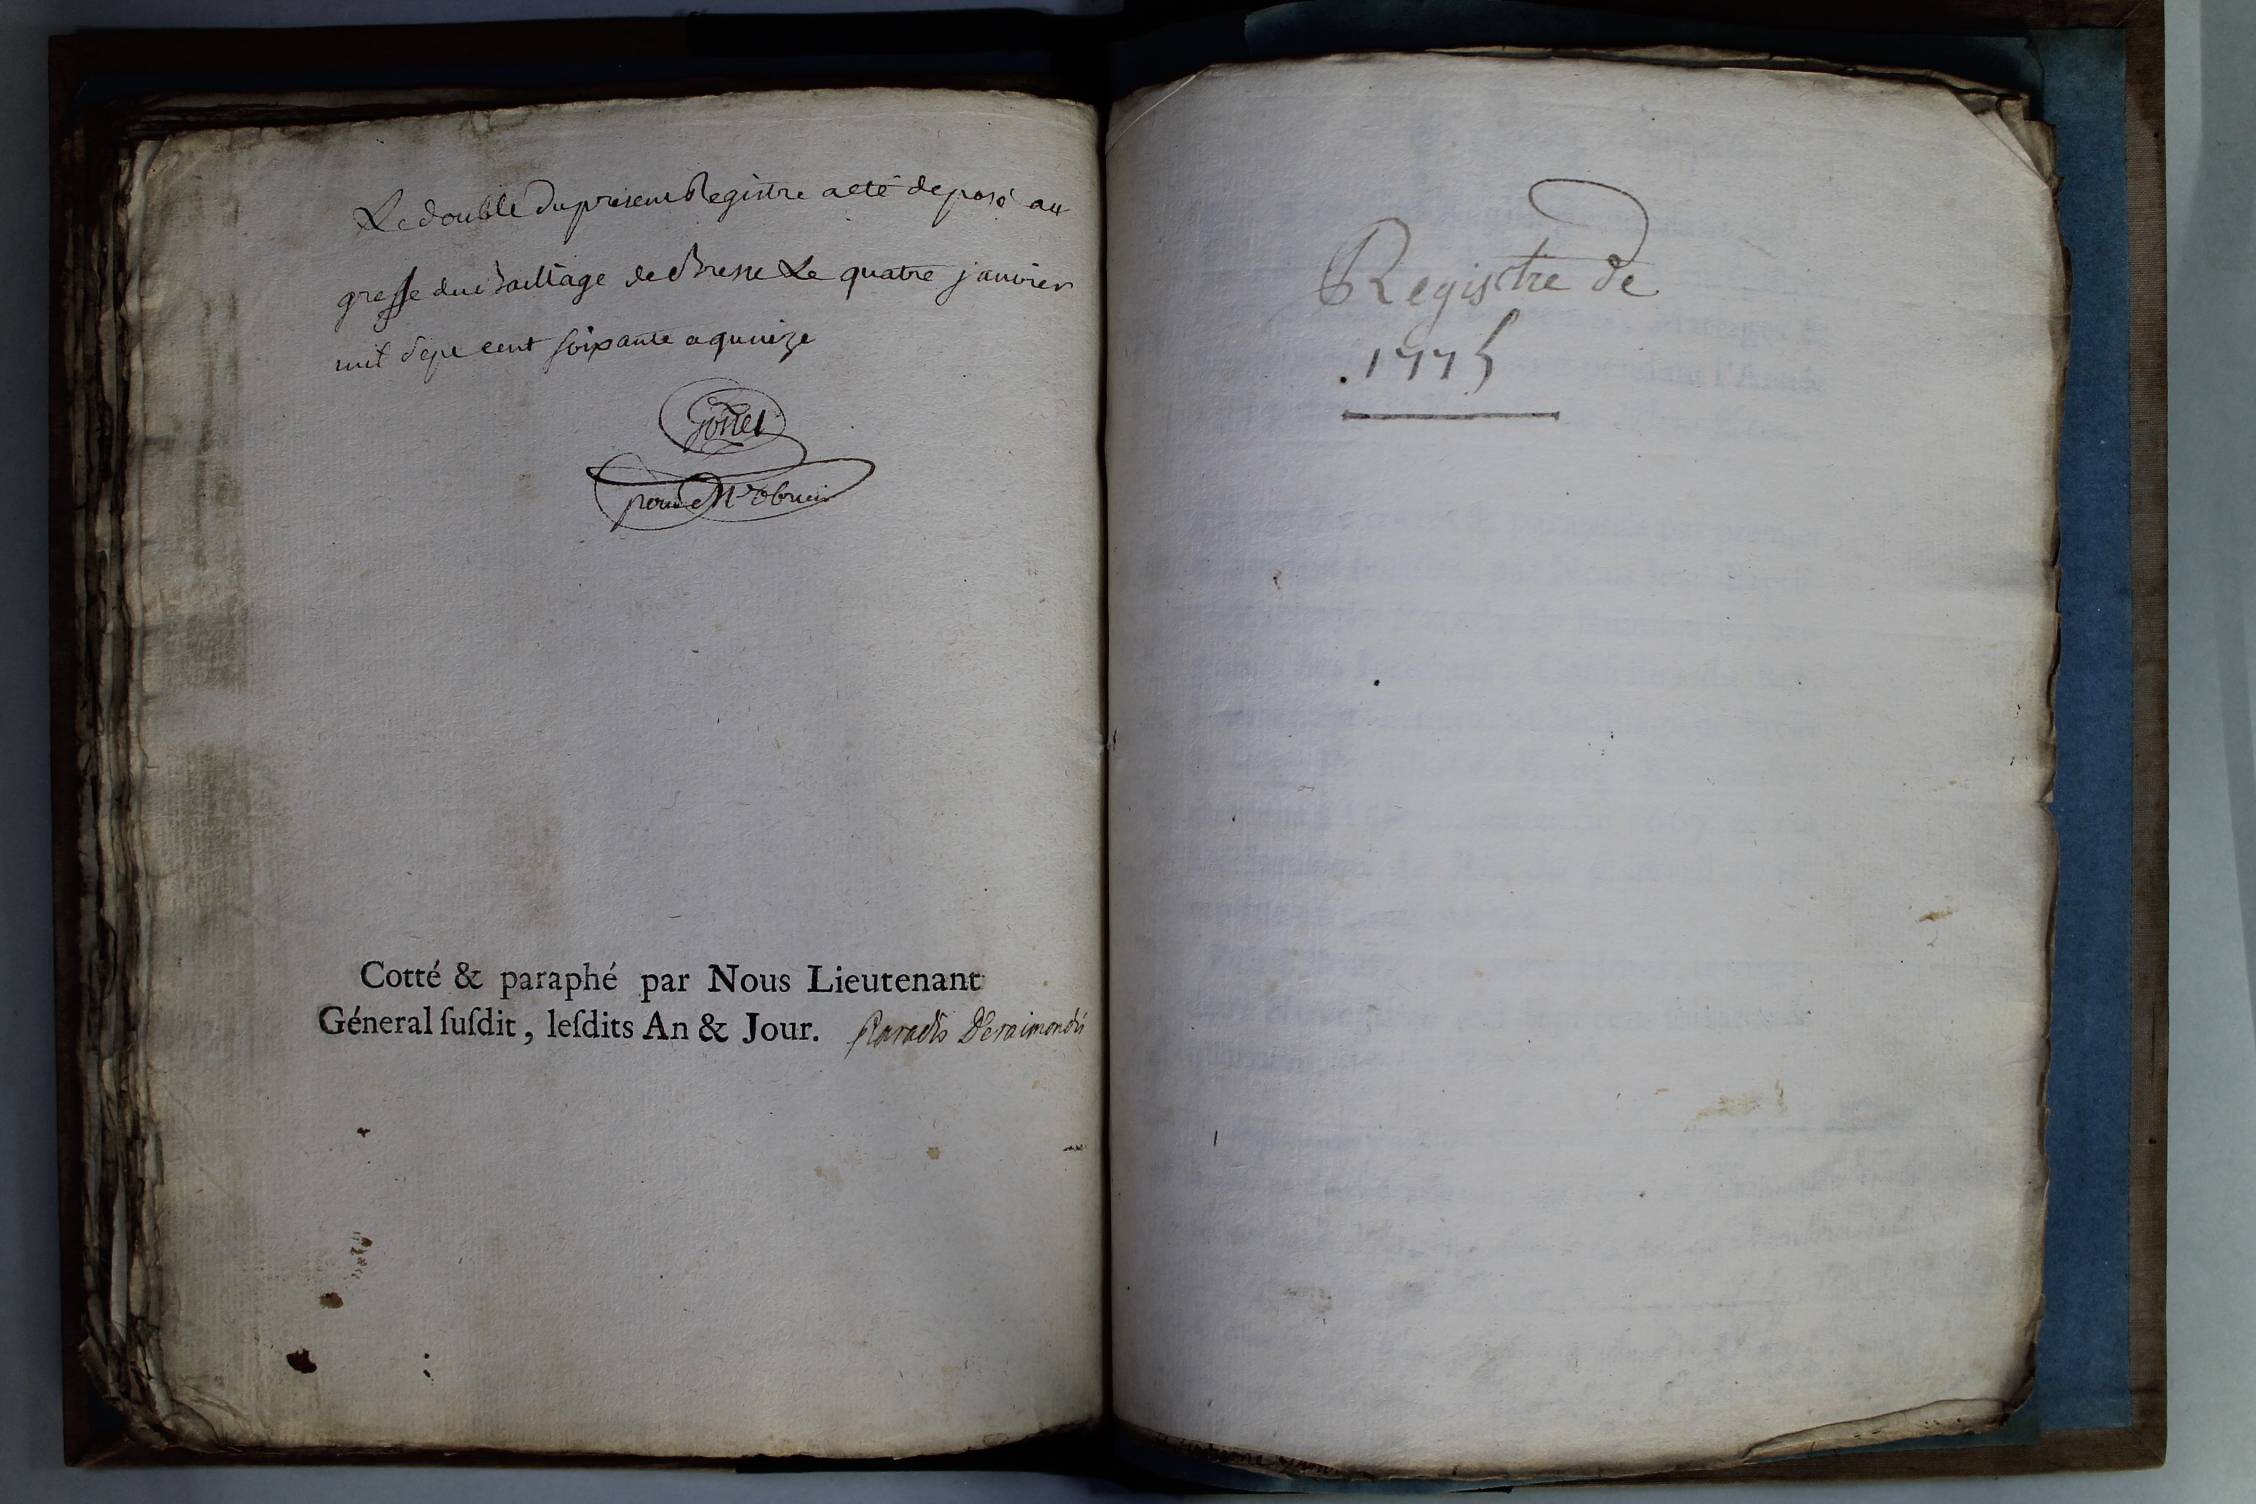 Le double du present Registre a eté deposé au
greffe du Bailliage de Bresse Le quatre janvier
mil sept cent soixante a quinze
Gonet
pour Mr
Cotté & paraphé par Nous Lieutenant
Géneral ſuſdit, leſdits An & Jour. Paradis Deraimondis
Registre de
1775